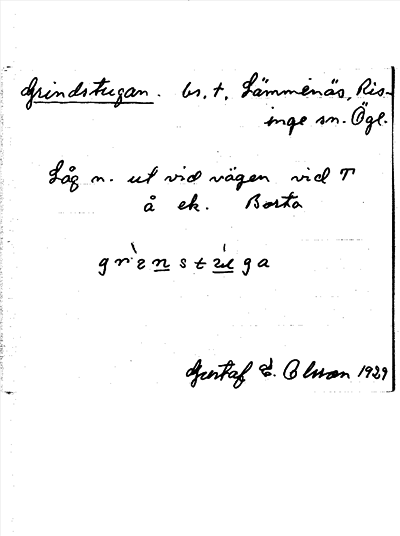 Grindstugan. bs. t. Lämmenäs, Ris-
inge sn. Ögl.
Låg n. ut vid vägen vid T
å ek. Borta
Gustaf E. Olsson 1929